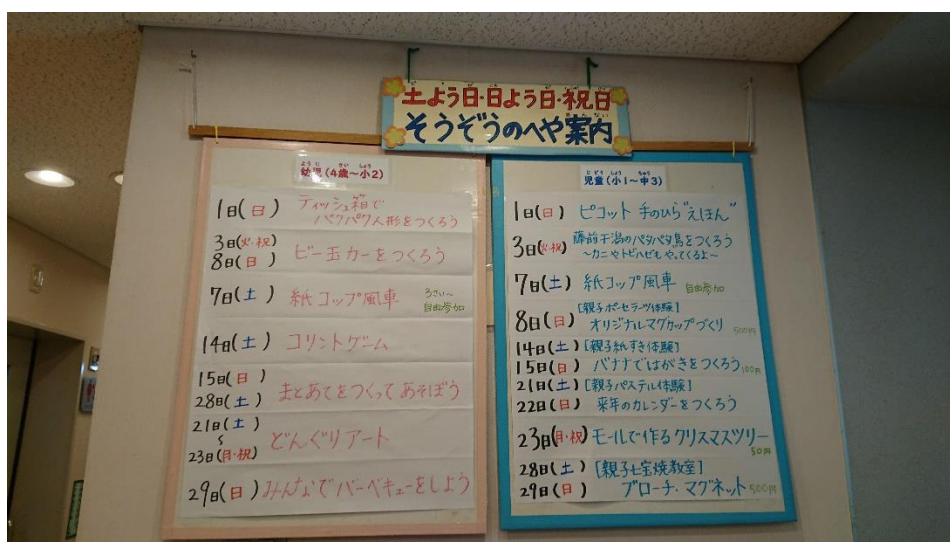 土よう日・日よう日・祝日
そうぞうのへや案内
幼児(4歳～小2)
1日(日) ティッシュ箱で
パクパク人形をつくろう
3日(火・祝)
8日(日) ビー玉カーをつくろう
7日(土) 紙コップ風車 3さい～
自由参加
14日(土) コリントゲーム
15日(日)
28日(土) まとあてをつくってあそぼう
21日(土)
～
23日(月・祝) どんぐりアート
29日(日) みんなでバーベキューをしよう
児童(小1～中3)
1日(日) ピコット 手のひら"えほん"
3日(火・祝) 藤前干潟のパタパタ鳥をつくろう
～カニやトビハゼもやってくるよ～
7日(土) 紙コップ風車 自由参加
8日(日) [親子ポーセラーツ体験]
オリジナルマグカップづくり 500円
14日(土) [親子紙すき体験]
15日(日) バナナではがきをつくろう 100円
21日(土) [親子パステル体験]
22日(日) 来年のカレンダーをつくろう
23日(月・祝) モールで作るクリスマスツリー
50円
28日(土) [親子七宝焼教室]
29日(日) ブローチ・マグネット 500円